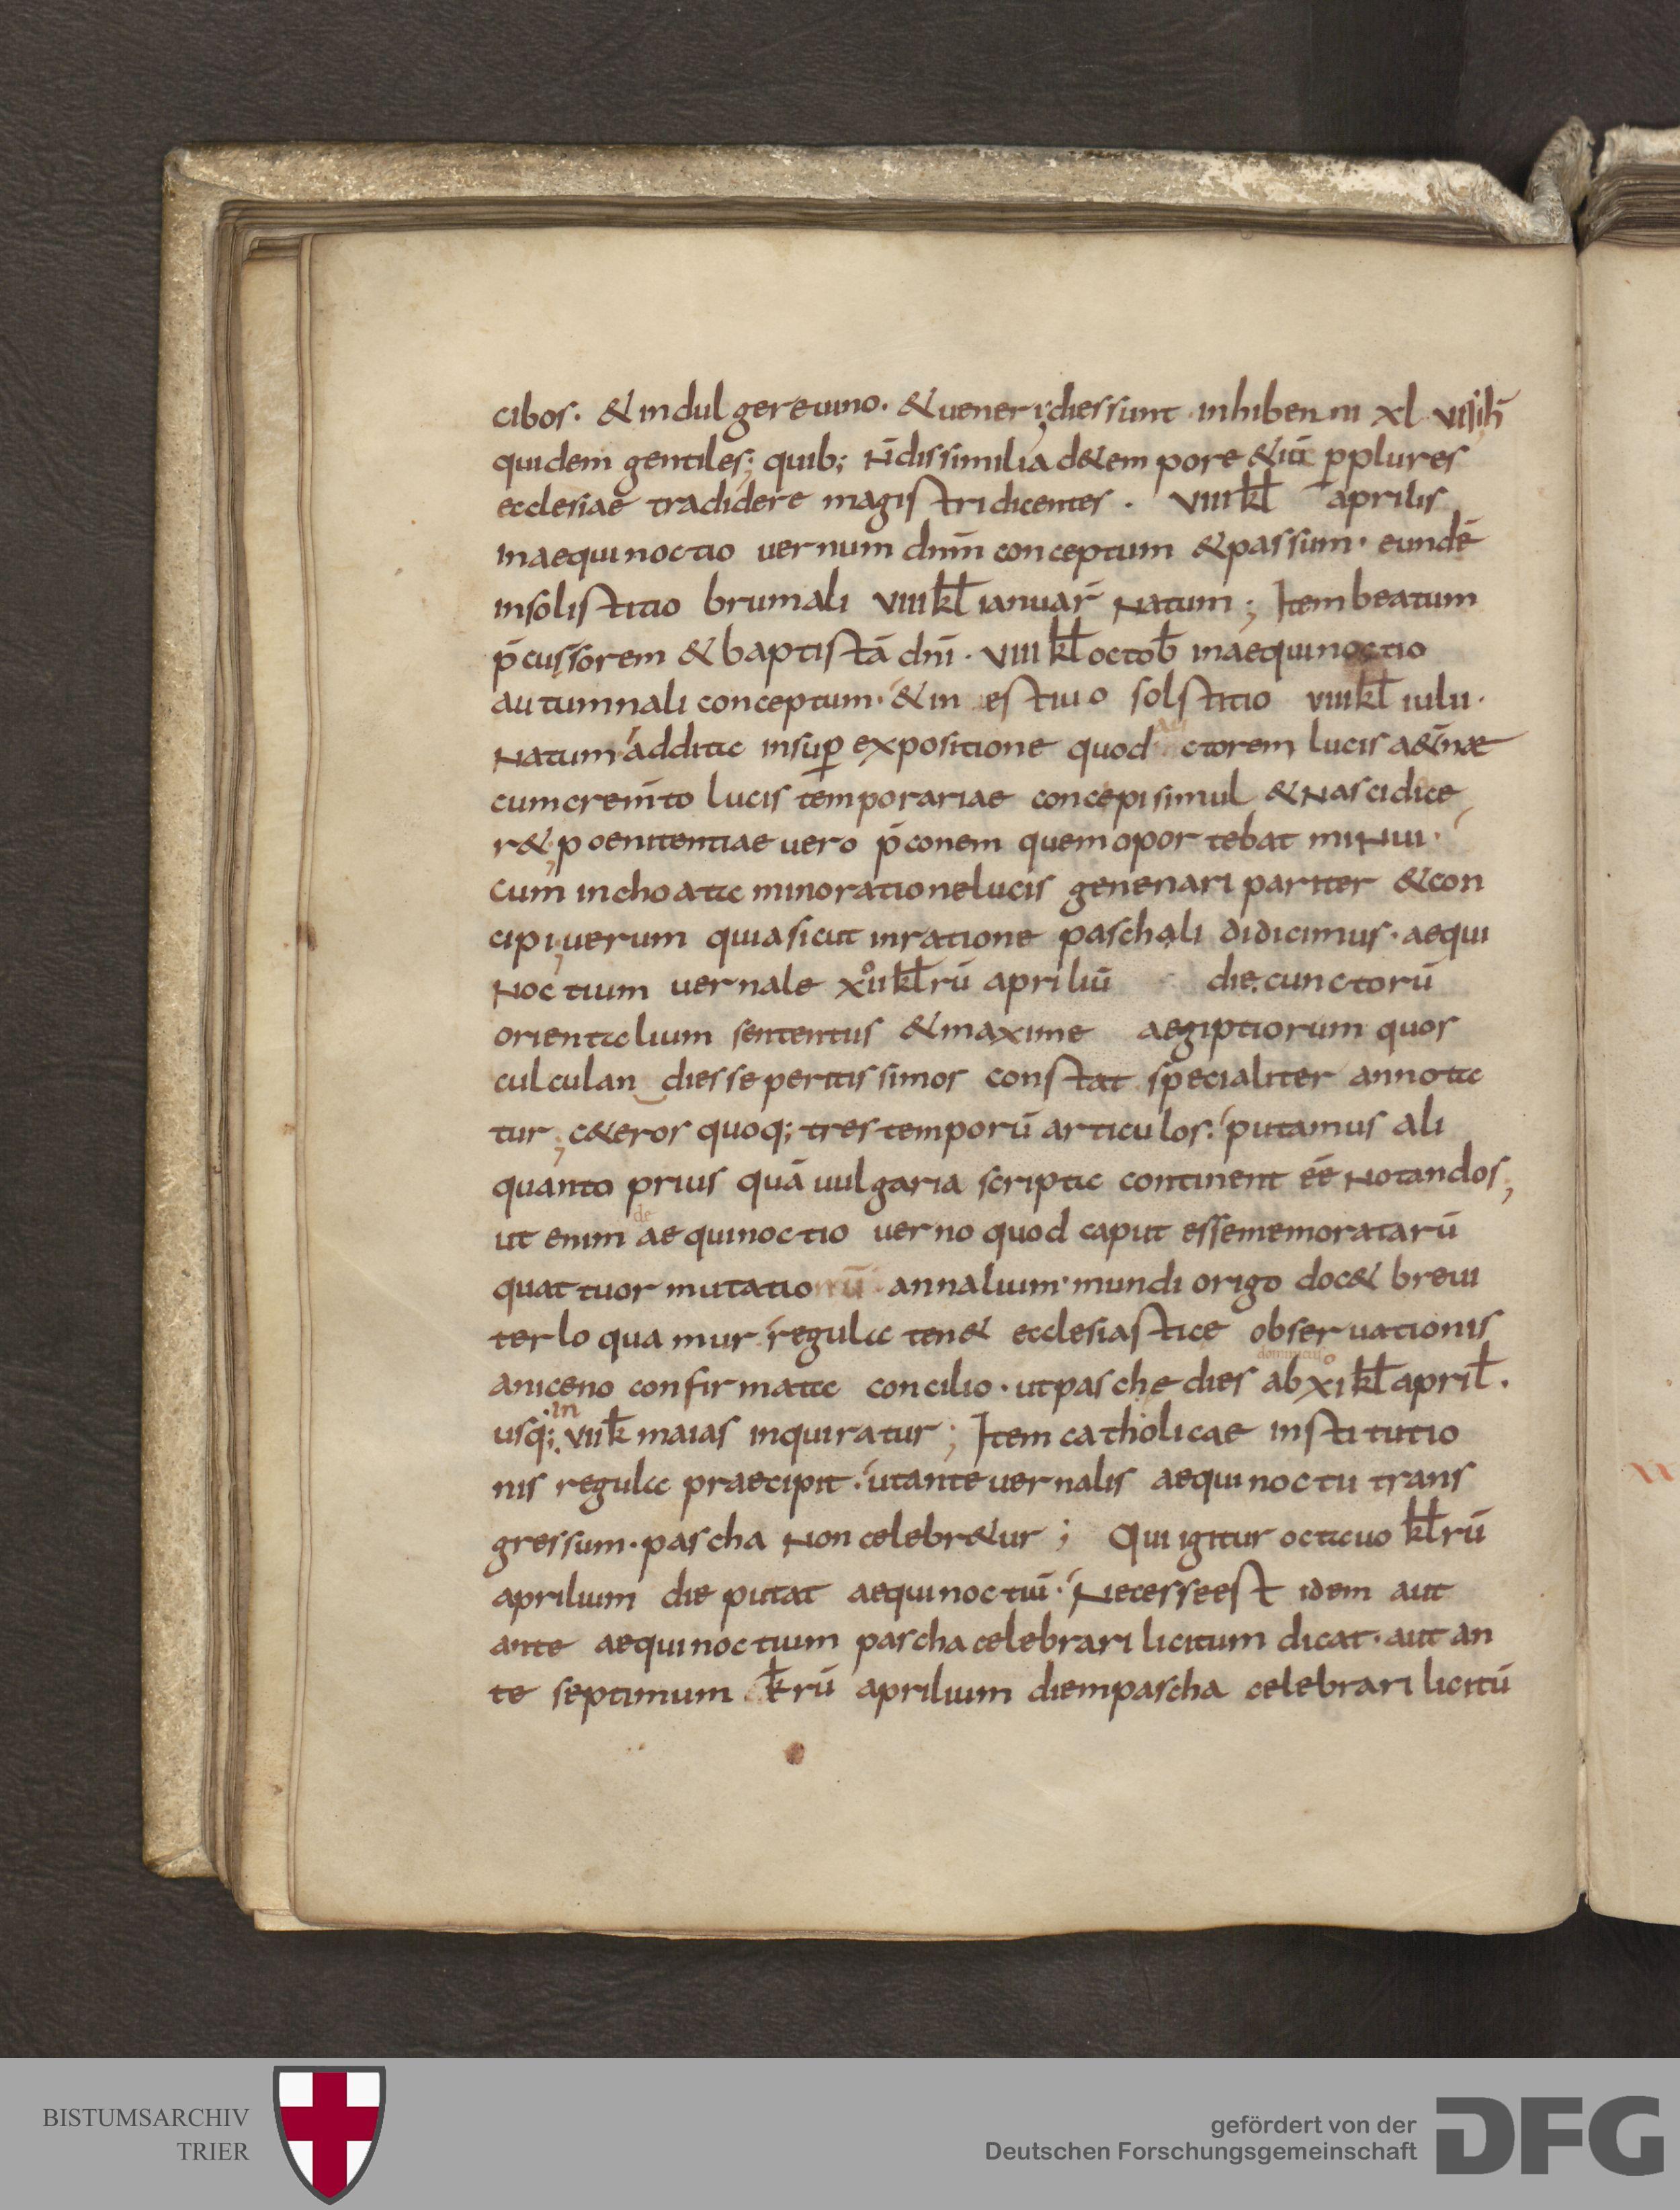 cibos. & indulgere uino. & ueneri; dies sunt inhiberni xl visih̄
quidem gentiles; quib; n̄ dissimilia de tempore & iā p plures
ecclesiae tradidere magistri dicentes. VIII kł aprilis
in aequinoctio uernum dn̄m conceptum & passum. eundē
in solistitio brumali VIII kł ianuar̄ natum; Item beatum
p̄cussorem & baptistā dn̄i. VIII kł octob̄ in aequinoctio
autumnali conceptum. & in estiuo solstitio VIII kł iulii.
natum addita insup expositione quod auctorem lucis aet̄nae
cum crem̄to lucis temporariae concepi simul & nasci dice
r&; poenitentiae uero p̄conem quem oportebat minui.
cum inchoata minoratione lucis genenari pariter & con
cipi; uerum quia sicut in ratione paschali didicimus. aequi
noctium uernale XII kłrū apriliū die cunctorū
orientalium sententiis & maxime aegiptiorum quos
culculandi esse peritissimos constat specialiter annota
tur; c&eros quoq; tres temporū articulos. putamus ali
quanto prius quā uulgaria scripta continent ēe notandos;
de
ut enim aequinoctio uerno quod caput esse memoratarū
quattuor mutationū annalium. mundi origo doc& breui
ter loquamur regula ten& ecclesiastice obseruationis
dominicus
aniceno confirmata concilio. ut paschę dies ab XI kł aprił.
in
usq; VII k̄ maias inquiratur; Item catholicae institutio
nis regula praecipit. ut ante uernalis aequinoctii trans
gressum. pascha non celebr&ur; Qui igitur octauo kłrū
aprilium die putat aequinoctiū. necesse est idem aut
ante aequinoctium pascha celebrari licitum dicat. aut an
te septimum k̄rū aprilium diem pascha celebrari licitū
BISTUMSARCHIV
TRIER
gefördert von der
Deutschen Forschungsgemeinschaft
DFG